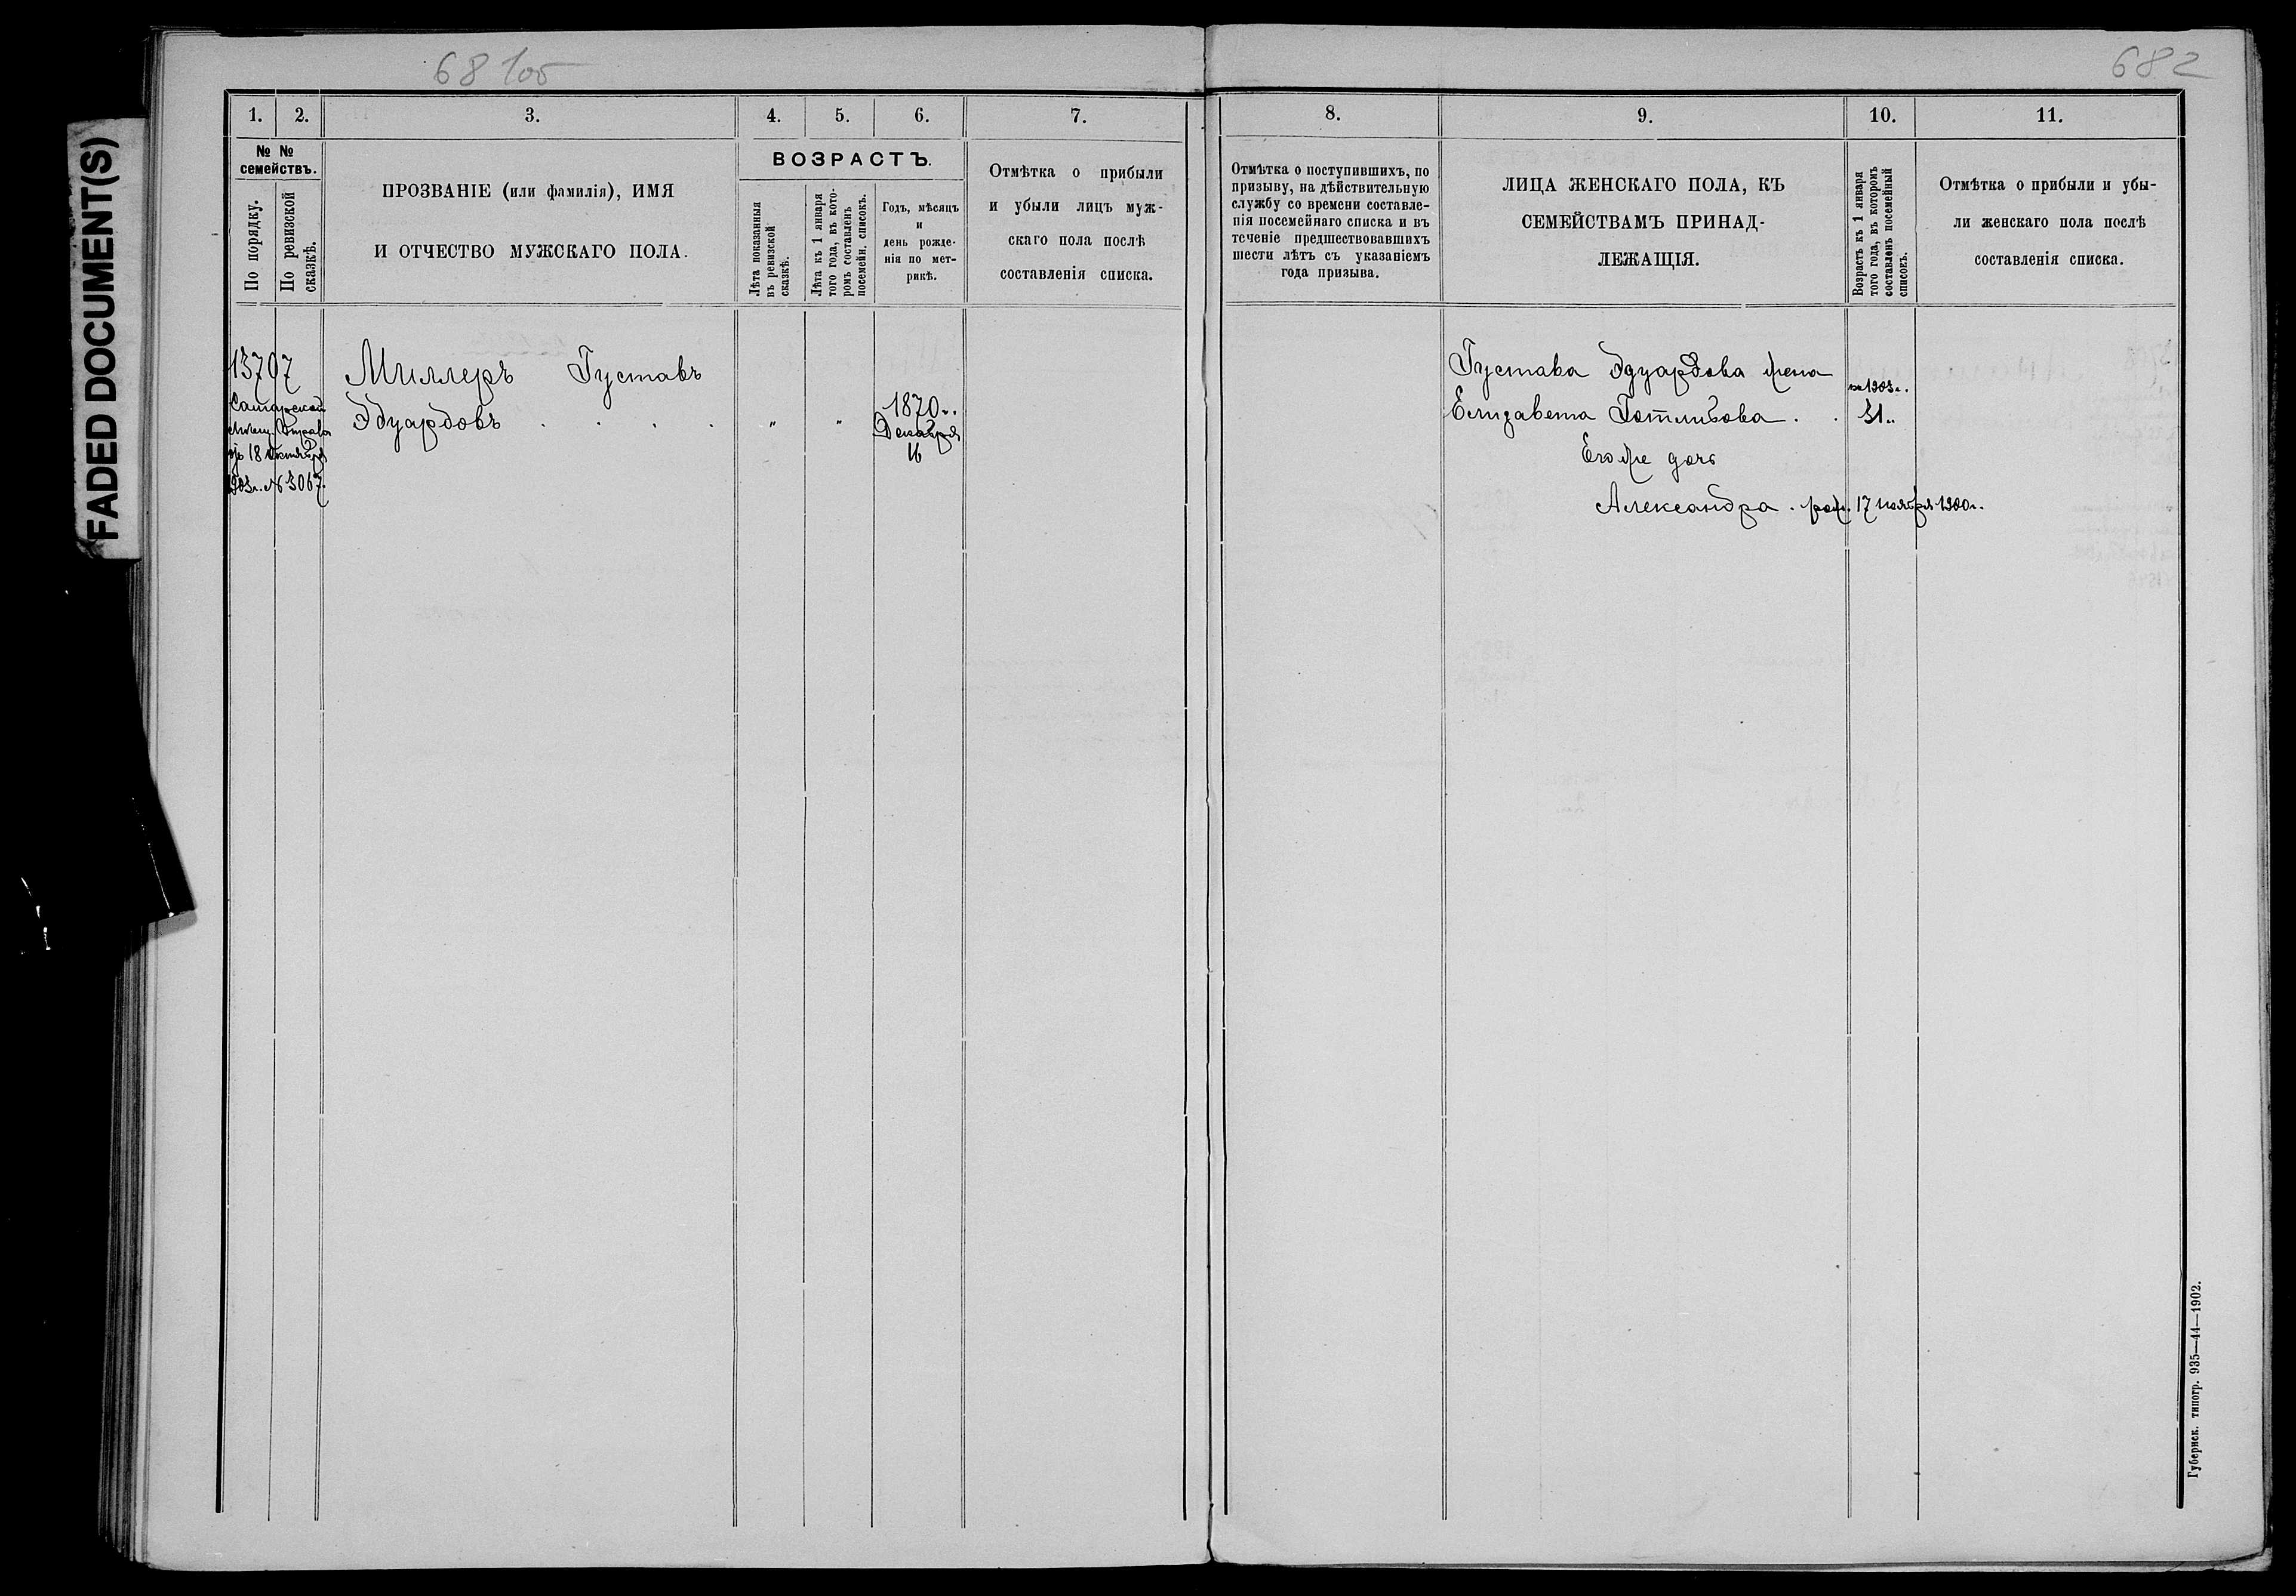 FADED DOCUMENT(S)
681об
1. 2. 3. 4. 5. 6. 7.
№ №
семействъ.
По порядку.
По ревизской
сказкѣ.
ПРОЗВАНІЕ (или фамилія), ИМЯ
И ОТЧЕСТВО МУЖСКАГО ПОЛА.
ВОЗРАСТЪ.
Лѣта показанныя
въ ревизской
сказкѣ.
Лѣта къ 1 января
того года, въ кото-
ромъ составленъ
посемейн. списокъ.
Годъ, мѣсяцъ
и
день рожде-
нія по мет-
рикѣ.
Отмѣтка о прибыли
и убыли лицъ муж-
скаго пола послѣ
составленія списка.
13797
Самарской
Мѣщ. Управы
18 октября
1903г. № 3067.
Миллеръ Густавъ
Эдуардовъ . . . . „ „
1870г.
Декабря
16
682
8. 9. 10. 11.
Отмѣтка о поступившихъ, по
призыву, на дѣйствительную
службу со времени составле-
нія посемейнаго списка и въ
теченіе предшествовавшихъ
шести лѣтъ съ указаніемъ
года призыва.
ЛИЦА ЖЕНСКАГО ПОЛА, КЪ
СЕМЕЙСТВАМЪ ПРИНАД-
ЛЕЖАЩІЯ.
Возрастъ къ 1 января
того года, въ которомъ
составленъ посемейный
списокъ.
Отмѣтка о прибыли и убы-
ли женскаго пола послѣ
составленія списка.
Густава Эдуардова жена
на 1903г.
Елизавета Готлибова . . 31..
Его же дочь
Александра . рожд. 17 ноября 1900г.
Губернск. типогр. 935—44—1902.